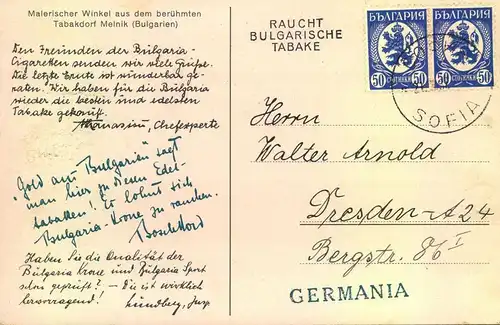 Malerischer Winkel aus dem berühmten
Tabakdorf Melnik (Bulgarien)
Den Freunden der Bulgaria-
Cigaretten senden wir viele Grüsse.
Die letzte Ernte ist wunderbar ge-
raten. Wir haben für die Bulgaria
wieder die besten und edelsten
Tabake gekauft.
Athanasiu, Chefexperte
"Gold aus Bulgarien" sagt
man hier zu diesen Edel-
tabaken! Es lohnt sich
Bulgaria-Krone zu rauchen.
Haben Sie die Qualität der
Bulgaria Krone und Bulgaria Sport
schon geprüft? – Sie ist wirklich
hervorragend!
RAUCHT
BULGARISCHE
TABAKE
БЪЛГАРИЯ
50 СТОТИНКИ 50
БЪЛГАРИЯ
50 СТОТИНКИ 50
SOFIA
Herrn
Walter Arnold
Dresden-A 24
Bergstr. 86 I
GERMANIA